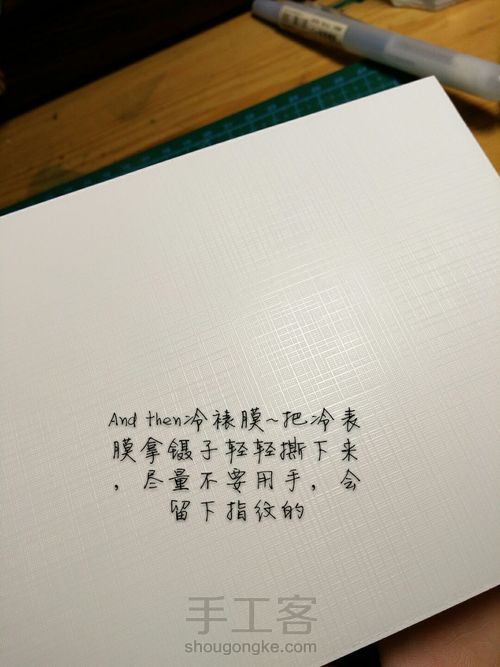 And then冷裱膜~把冷表
膜拿镊子轻轻撕下来
，尽量不要用手，会
留下指纹的
手工客
shougongke.com